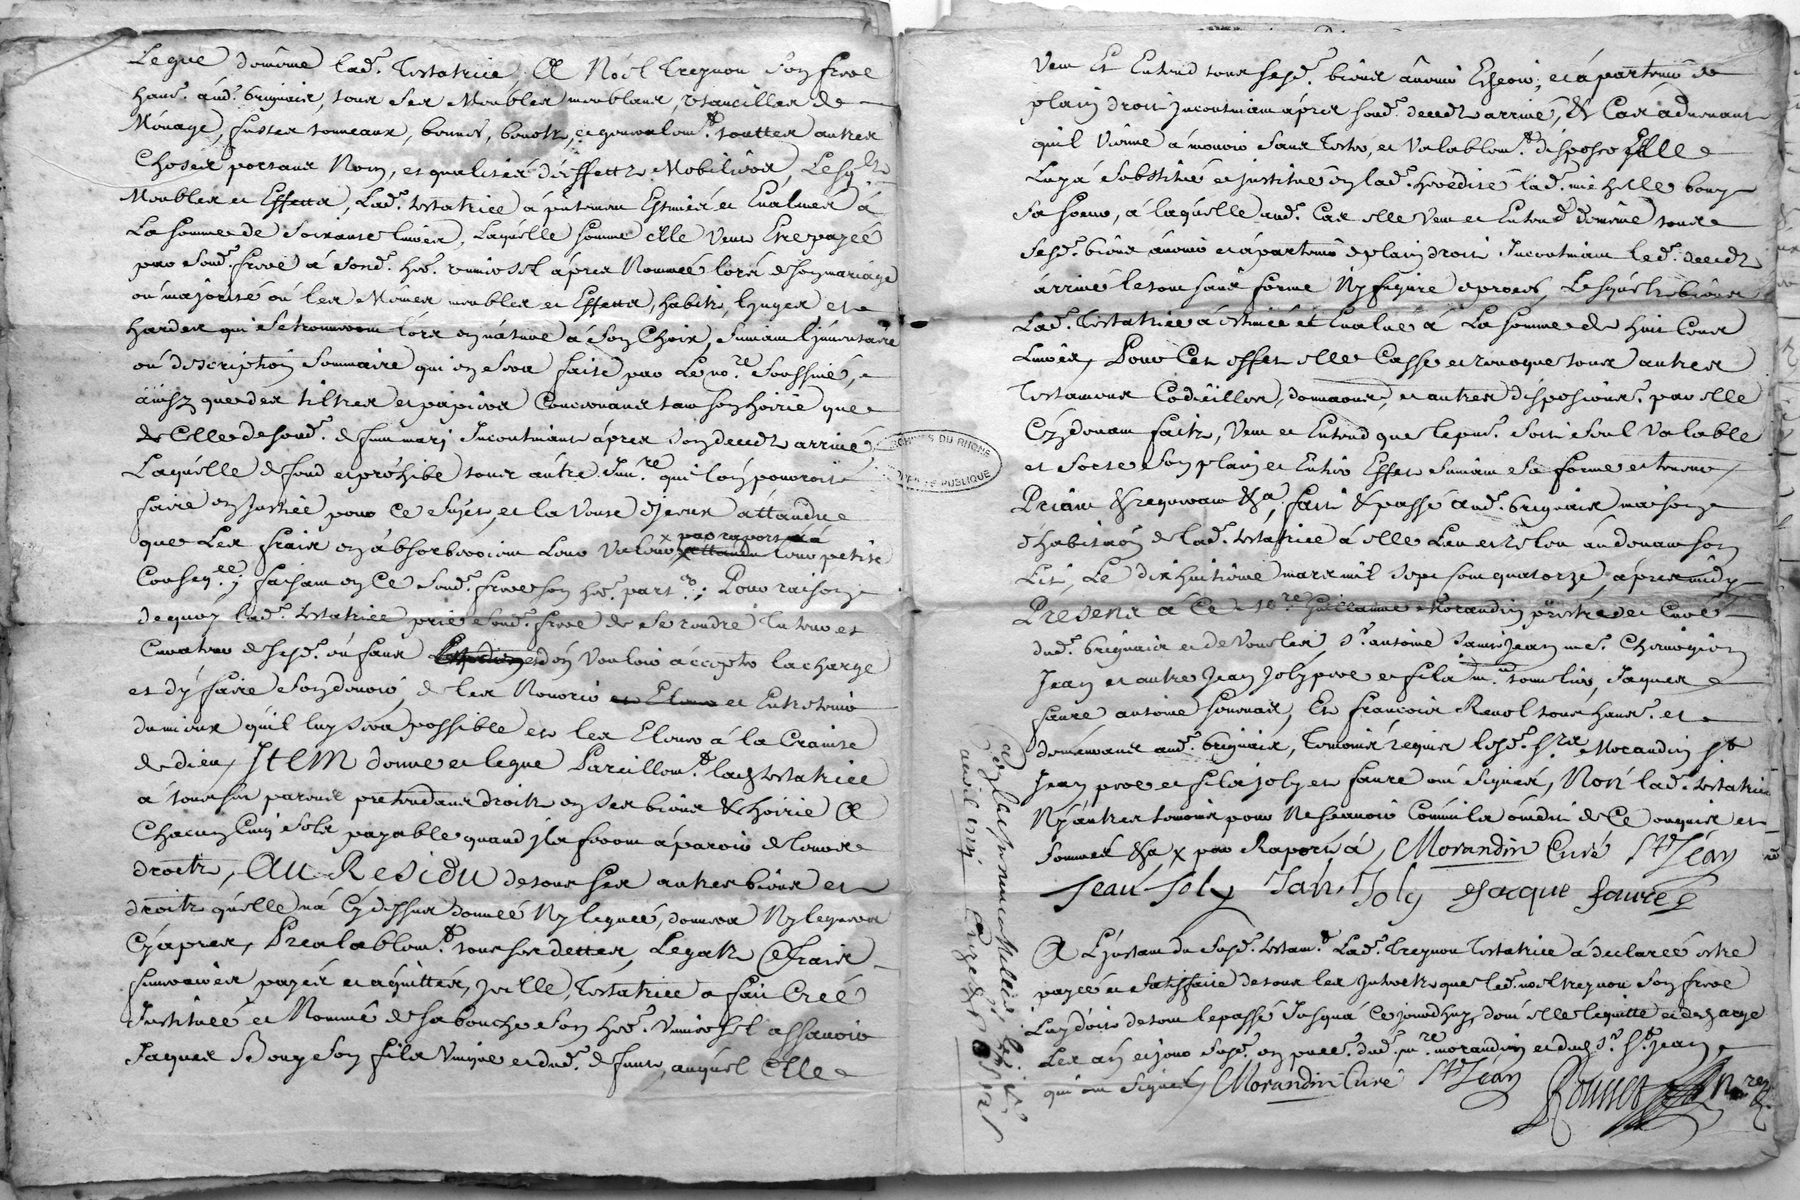 Legue domême lad.e testatrice A Noël treynou son frere
habt. aud. brignais, tous ses Meubles meublans, ustancilles de
Ménage, fustes tonneaux, bennes, benots, et generalemt. touttes autres
Choses portans Nom, et qualités d'effetts Mobiliers, Lesqls.
Meubles et Effetts, Lad.e testatrice aputemen Estimés et Evalués à
La somme de Soixante livres, Laquelle somme elle veut Etre payée
par sond. frere à sond. her. universel après Nommée lors de son mariage
ou majorité ou les Mêmes meubles et Effetts, habits, linges et
hardes qui se trouveront lors en nature à son Choix, suivant l'inventaire
ou description Sommaire qui en sera faite par Le no.re soussigné,
ainsy que des tiltres et papiers Concernants tant son hoirie que
de Celle de sond. deffunt mari Incontinant après son decedz arrivé
Laquelle deffend et prohibe tout autre Inv.re qu'il en pouvroit
faire en Justice pour ce sujet, et la Vente d'jceux attandu
x par raport à
que Les frais en absorberoient Leur Valeur x attandu leur petite
Conseq.ce; faisant en ce sond. frere son her. part.er; Pour raison
dequoy lad.e testatrice prie sond. frere de se rendre Tuteur et
Curateur desesd. enfans et d'en Vouloir accepter la charge
et d'y faire son devoir, de les Nourrir et Elever et Entretenir
du mieux qu'il luy sera possible et les Elever à la Crainte
de dieu, Item donne et legue Pareillemt. lad. testatrice
à tous ses parens pretendans droits en ses biens & hoirie A
Chacun Cinq sols payable quand jls feront aparoir de leurs
droits, Au Residu de tous ses autres biens et
droits quelle n'a Cy dessus donnée Ny leguée, donnera Ny leguera
Cy après, Prealablemt. tous ses dettes, Legats & frais
funeraires payés et aquittés, jcelle, testatrice a fait Creé
Instituée et Nommé de sa bouche son her. Universel assavoir
Jaques Bouy son fils Unique et dud. deffunt, auquel Elle
Veut Et Entend tous sesd. biens avenir Escheoir, et apartenir de
plain droit jncontinant après sond. decedz arrivé, & Cas advenant
qu'il Vienne à mourir sans tester, et Valablemt. disposer Elle
Luy a substitué et justitué en lad. herédité lad.e michelle bouy
sa soeur, à laquelle aud. Cas elle veut et Entend demême tous
sesd. biens avenir et apartenir deplain droit Incontinant led. decedz
arrivé le tout sans forme Ny figure de procés, Lesquels biens
Lad.e testatrice à estimée et Evalué à La somme de huit Cens
Livres, Pour Cet effet elle Casse et revoque tous autres
Testamens Codicilles, donnaons, et autres disposions. par elle
Cy devant faits, Veut et Entend que le pnt. soit seul Valable
et sorte son plain et Entier Effet suivant sa forme et teneur,
Priant & requerant &a, fait & passé aud. brignais maison
d'habitaon de lad. testatrice à elle Leu et relu audevant son
Lit, Le dixhuitième mars mil sept cent quatorze, après midy
Presens à Ce m.re Guillaume Morandin prêtre et Curé
dud. brignais et de Vourles, S.r antoine Saint Jean m.e Chirurgien
Jean et autre Jean Joly pere et fils m.es tonnelier, Jaques
faure antoine fournas, Et françois Revol tous habt. et
demeurans aud. brignais, temoins requis lesd. srs. Morandin St
Jean pere et fils joly et faure ont signés, Non lad.e testatrice
Ny autres temoins pour Ne sçavoir Comm'ils ont dit de Ce enquis et
sommés &a x par Raport à, Morandin Curé St Jean
Jean Joly Jan Joly Jacque faure
A L'jnstant du susd. testam.t Lad.e treynou testatrice à declarée estre
payée et satisfaite de tous les jnterets que led. noel treynou son frere
Luy doit de tout le passé Jusqu'à Cejourd'huy, dont elle le quitte et descharge
Les an et jour susd. en pnce. dud. m.re morandin et dud. S.r St Jean
qui ont signés, Morandin Curé St Jean Rousset n.re
ARCHIVES DU RHONE